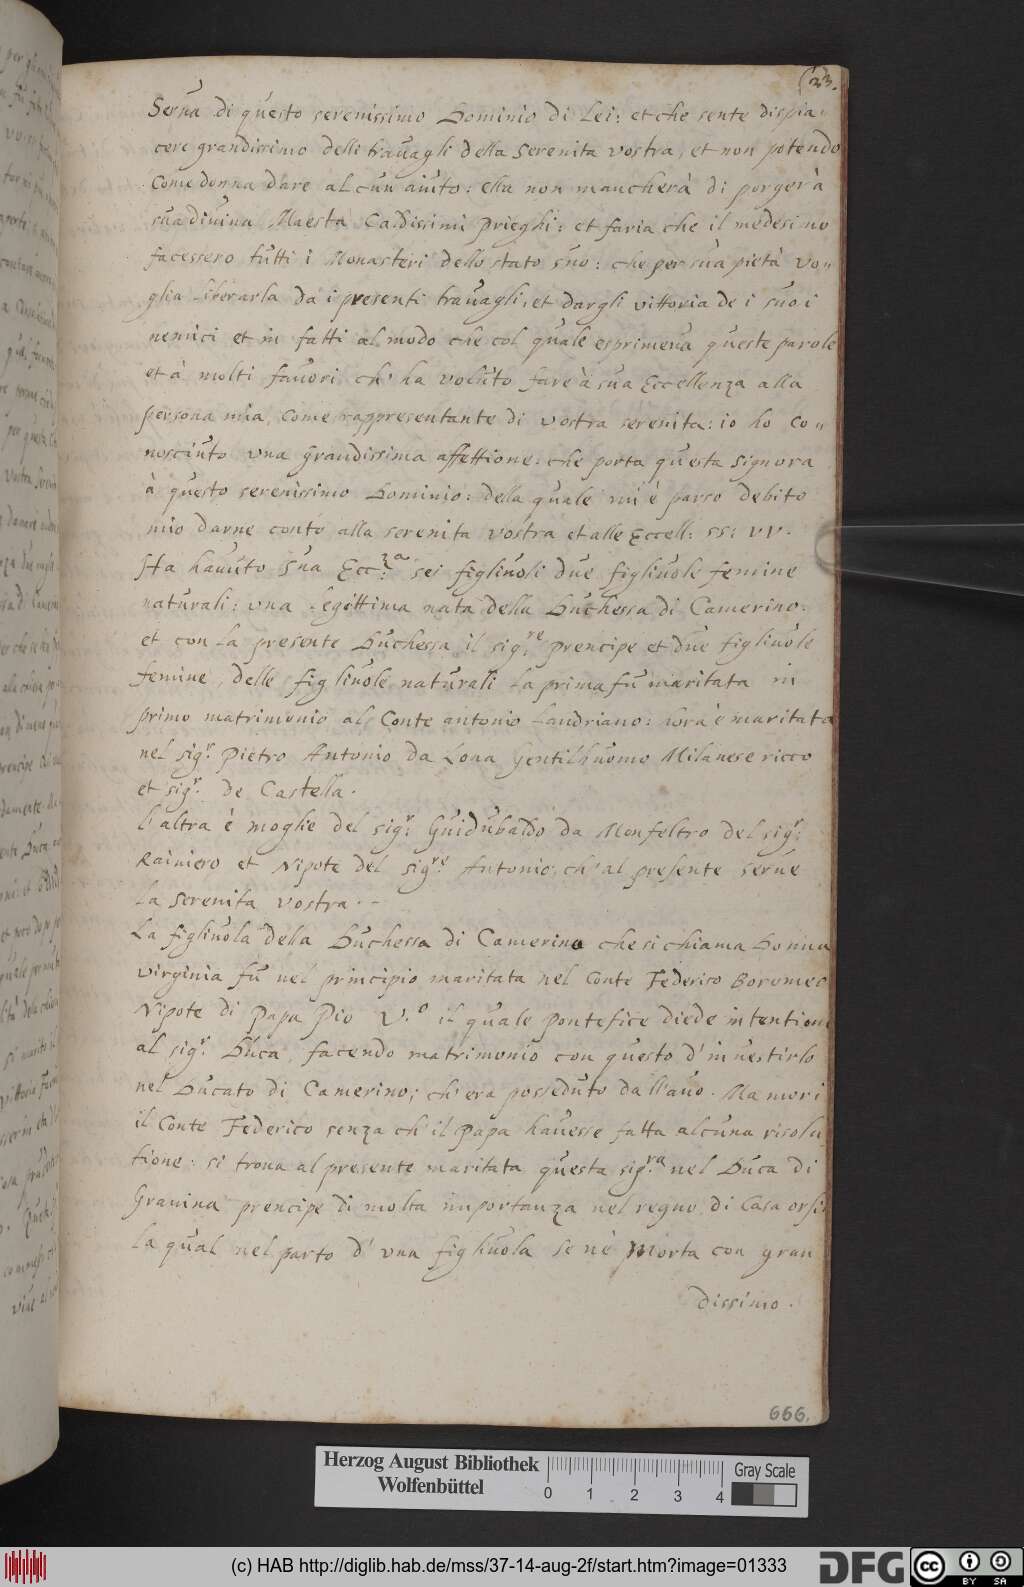 23.
Serua di questo serenissimo Dominio di Lei: et che sente dispia-
cere grandissimo delli trauagli della Serenita vostra, et non potendo
come donna dare alcun aiuto: ella non mancherà di porgerà
sua diuina Maesta Caldissimi prieghi: et faria che il medesimo
facessero tutti i Monasteri dello stato suo: che per sua pietà vo-
glia liberarla da i presenti trauagli, et dargli vittoria de i suoi
nemici et in fatti al modo che col quale esprimeua queste parole
et à molti fauori ch' ha voluto fare à sua Eccellenza alla
persona mia, come rappresentante di vostra serenita: io ho co-
nosciuto vna grandissima affettione: che porta questa Signora
à questo serenissimo Dominio: della quale mi è parso debito
mio darne conto alla serenita vostra et alle Eccell: ss: vv.
Ha hauuto sua Ecc:za sei figliuoli due figliuole femine
naturali: vna legittima nata della Duchessa di Camerino:
et con la presente Duchessa il sig:re prencipe et due figliuole
femine, delle figliuole naturali la prima fu maritata in
primo matrimonio al Conte antonio Landriano: hora è maritata
nel sig:r Pietro Antonio da Lona Gentilhuomo Milanese ricco
et sig:r de Castella.
l'altra è moglie del sig:r Guidubaldo da Monfeltro del sig:r
Rainiero et Nipote del sig:re Antonio, ch' al presente serue
la Serenita vostra.
La figliuola della Duchessa di Camerino che si chiama Donna
virginia fu nel principio maritata nel Conte Federico Boromeo
Nipote di Papa Pio V.o il quale pontefice diede intentione
al sig:r Duca, facendo matrimonio con questo d' inuestirlo
nel Ducato di Camerino; ch' era posseduto dall'auo. Ma mori
il Conte Federico senza ch' il Papa hauesse fatta alcuna risolu
tione: si troua al presente maritata questa sig:ra nel Duca di
Grauina prencipe di molta importanza nel regno di Casa orsi
la qual nel parto d' vna figliuola se nè morta con gran
dissimo.
666.
Herzog August Bibliothek
Wolfenbüttel
0 1 2 3 4
Gray Scale
(c) HAB http://diglib.hab.de/mss/37-14-aug-2f/start.htm?image=01333
DFG
cc BY SA